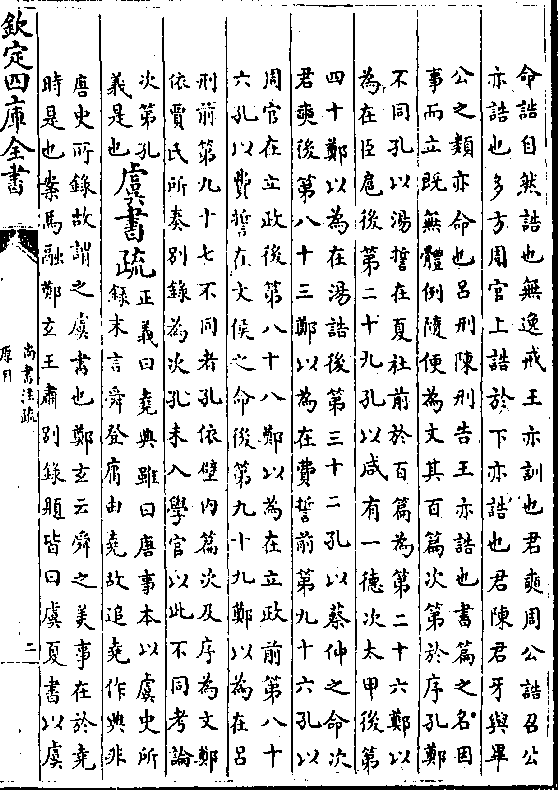 命誥自然誥也無逸戒王亦訓也君奭周公誥召公
亦誥也多方周官上誥於下亦誥也君陳君牙與畢
公之類亦命也呂刑陳刑告王亦誥也書篇之名因
事而立既無體例隨便為文其百篇次第於序孔鄭
不同孔以湯誓在夏社前於百篇為第二十六鄭以
為在臣扈後第二十九孔以咸有一德次太甲後第
四十鄭以為在湯誥後第三十二孔以蔡仲之命次
君奭後第八十三鄭以為在費誓前第九十六孔以
周官在立政後第八十八鄭以為在立政前第八十
六孔以費誓在文侯之命後第九十九鄭以為在呂
刑前第九十七不同者孔依壁内篇次及序為文鄭
依賈氏所奏别録為次孔未入學官以此不同考論
次第孔
義是也
虞書
疏
正義曰堯典雖曰唐事本以虞史所
録末言舜登庸由堯故追堯作典非
唐史所錄故謂之虞書也鄭玄云舜之美事在於堯
時是也案馬融鄭玄王肅别録題皆曰虞夏書以虞
欽定四庫全書
尚書注疏
原目
二